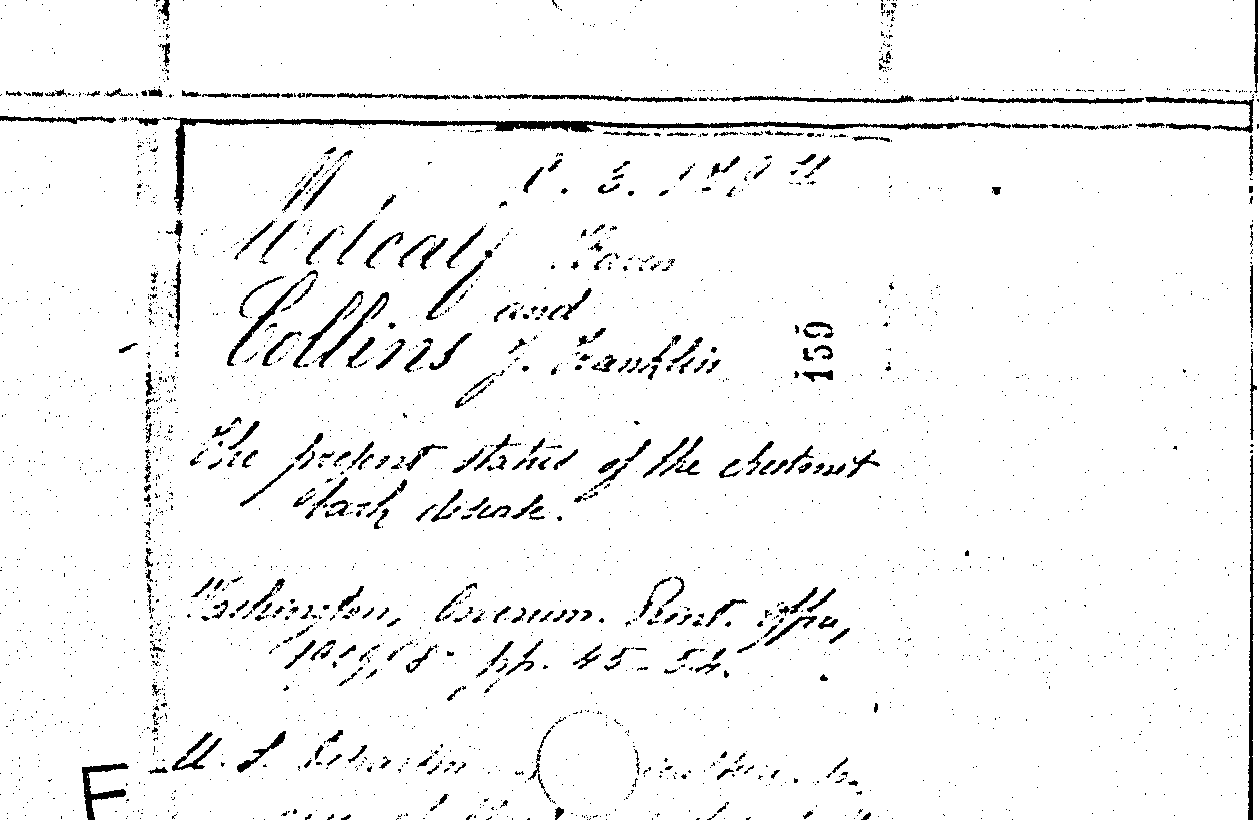 M
Metcalf, Haven
and
Collins J. Franklin
159
The present status of the chestnut
bark disease.
Washington, Governm. Print. Office,
1909, 8° pp. 45-54.
U. S. Departm
F